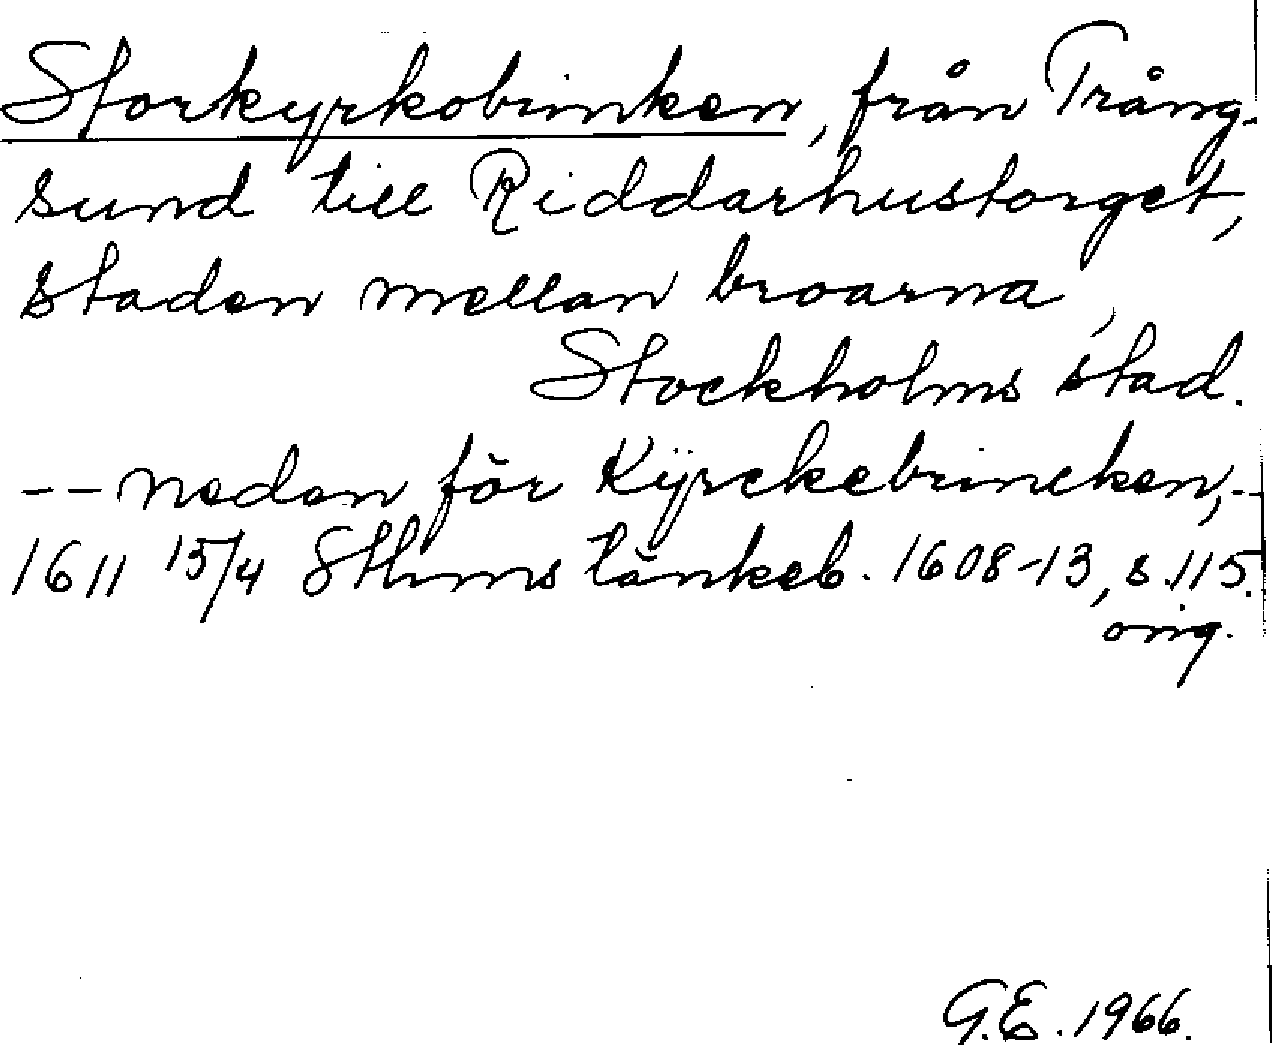 Storkyrkobrinken, från Trång-
sund till Riddarhustorget,
staden mellan broarna,
Stockholms stad.
-- neden för Kÿrckebrincken, -
1611 15/4 Sthms tänkeb. 1608-13, s. 115.
orig.
G.E. 1966.